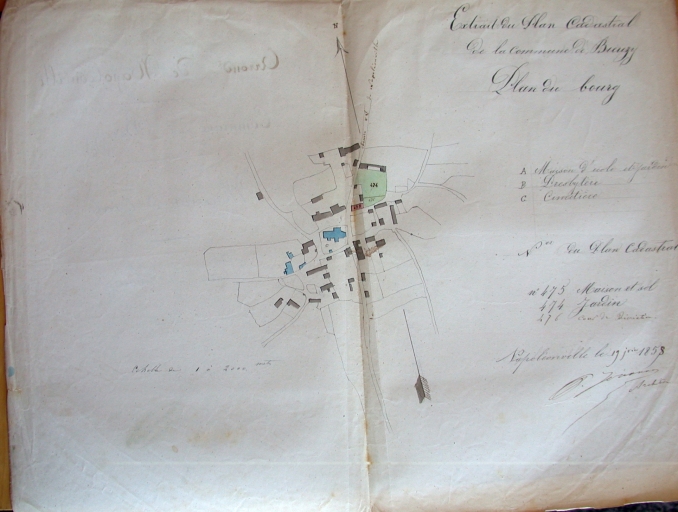 Extrait du Plan Cadastral
de la commune de Bieuzy
Plan du bourg
N
A Maison d'école et jardin
B Presbytère
C Cimetière
474
Nos du Plan Cadastral
n° 473 Maison et sol
474 Jardin
476
Echelle de 1 à 2000
Napoléonville le 19 juin 1858